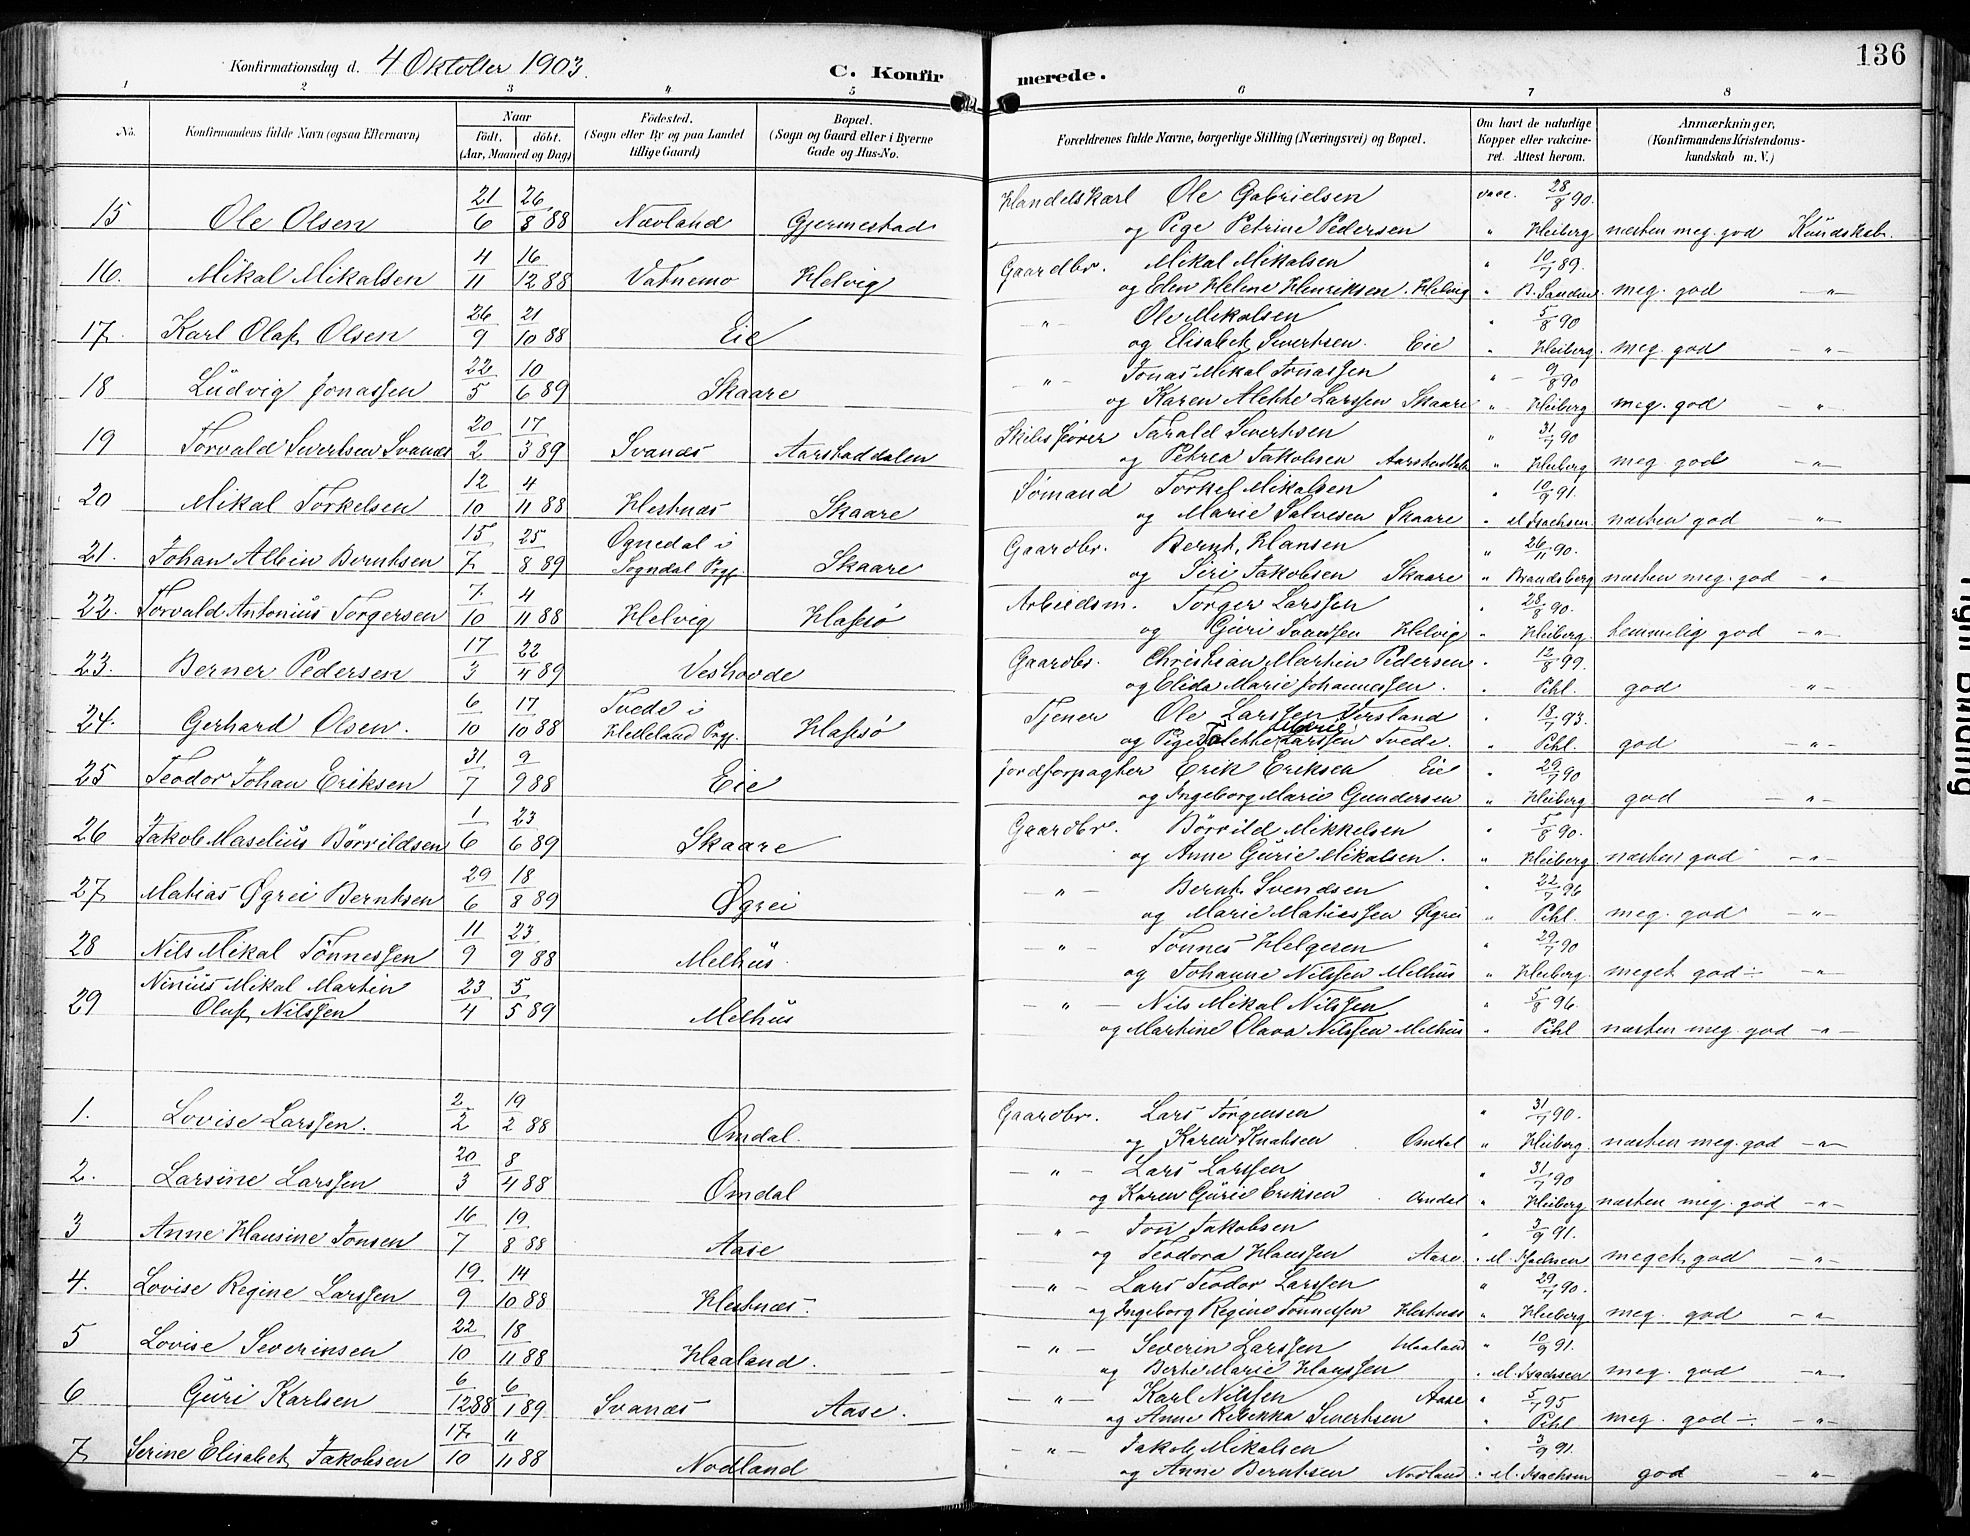 136
Konfirmationsdag d. 4 Oktober 1903. C. Konfirmerede.
1 2 3 4 5 6 7 8
No. Konfirmandens fulde Navn (ogsaa Efternavn) Naar født. døbt. (Aar, Maaned og Dag) Fødested. (Sogn eller By og paa Landet tillige Gaard) Bopæl. (Sogn og Gaard eller i Byerne Gade og Hus-No. Forældrenes fulde Navne, borgerlige Stilling (Næringsvei) og Bopæl. Om havt de naturlige Kopper eller vakcineret. Attest herom. Anmærkninger, (Konfirmandens Kristendomskundskab m. V.)
15 Ole Olsen 21/6 26/8 88 Nævland Gjermestad Handelskarl Ole Gabrielsen vacc. 28/8 90.
og Pige Petrine Pedersen " Heiberg næsten meg. god Kundskab.
16. Mikal Mikalsen 4/11 16/12 88 Vatnemo Helvig Gaardbr. Mikal Mikalsen " 10/7 89.
og Elen Helene Henriksen. Helvig " B. Sandve meg. god — " —
17. Karl Olaf Olsen 26/9 21/10 88 Eie — " — Ole Mikalsen " 5/8 90
og Elisabet Sivertsen. Eie " Heiberg. meg. god — " —
18 Ludvig Jonassen 22/5 10/6 89 Skaare — " — Jonas Mikal Jonassen " 9/8 90
og Karen Alette Larssen Skaare " Heiberg meg. god — " —
19 Torvald Sivertsen Svanæs 20/2 17/3 89 Svanæs Aarstaddalen Skibsfører Tarald Sivertsen " 31/7 90
og Petrea Jakobsen Aarstaddal " Heiberg meg god — " —
20 Mikal Torkelsen 12/10 4/11 88 Hestnæs Skaare Sømand Torkel Mikalsen " 10/9 91.
og Marie Salvesen Skaare " M. Isachsen næsten god — " —
21. Johan Albin Berntsen 15/7 25/8 89 Ognedal i Sogndal Prgj. Skaare Gaardbr. Bernt Hansen " 26/11 90.
og Siri Jakobsen Skaare " Brandsberg næsten meg. god — "
22. Torvald Antonius Torgersen 7/10 4/11 88 Helvig Hafsø Arbeidsm. Torger Larssen " 28/8 90.
og Guri Ivarssen Helvig " Heiberg. temmelig god — " —
23. Berner Pedersen 17/3 22/4 89 Veshovde Gaardbr. Christian Martin Pedersen " 12/8 99.
og Elida Marie Johannessen. " Pihl. god " —
24. Gerhard Olsen. 6/10 17/10 88 Tvede i Helleland Prgj. Hafsø Tjener Ole Larssen Versland " 18/7 93.
og Pige Talette Marie Larssen Tvede. " Pihl. god — " —
25 Teodor Johan Eriksen 31/7 9/9 88 Eie Jordforpagter Erik Eriksen Eie " 29/7 90
og Ingeborg Marie Gundersen " Heiberg god — " —
26 Jakob Maselius Børrildsen 1/6 23/6 89 Skaare Gaardbr. Børrild Mikkelsen " 5/8 90.
og Anne Gurie Mikalsen. " Heiberg. næsten god — " —
27 Matias Øgrei Berntsen 29/6 18/8 89 Øgrei — " — Bernt Svendsen " 22/7 96
og Marie Matiassen Øgrei " Pihl. meg. god — " —
28 Nils Mikal Tønnessen 11/9 23/9 88 Melhus. — " — Tønnes Helgesen " 29/7 90
og Johanne Nilssen Melhus " Heiberg. meget god ÷ — " —
29 Ninius Mikal Martin Olaf Nilssen 23/4 5/5 89 Melhus — " — Nils Mikal Nilssen " 5/8 96.
og Martine Olava Nilssen Melhus " Pihl næsten meg. god — " —
1. Lovise Larssen. 2/2 19/2 88 Omdal. Gaardbr. Lars Jørgensen " 31/7 90.
og Karen Knutsen. Omdal " Heiberg næsten meg. god — " —
2. Larsine Larssen 20/3 8/4 88 Omdal — " — Lars Larssen " 31/7 90
og Karen Gurie Eriksen. Omdal " Heiberg næsten meg. god — " —
3 Anne Hansine Jonsen 16/7 19/8 88 Aase — " — Jon Jakobsen " 3/9 91.
og Teodora Hanssen Aase. " M. Isachsen meget god — " —
4. Lovise Regine Larssen 19/9 14/10 88 Hestnæs. — " — Lars Teodor Larssen " 29/7 90.
og Ingeborg Regine Tønnessen Hestnæs " Heiberg meg. god — " —
5 Lovise Severinsen 22/10 18/11 88 Haaland. — " — Severin Larssen Haaland " 10/9 91.
og Berte Marie Hanssen " M. Isachsen meg. god — " —
6 Guri Karlsen 6/12 88 6/1 89 Svanæs Aase. — " — Karl Nilssen Aase " 5/7 95
og Anne Rebekka Sivertsen " Pihl meg. god ÷ — " —
7 Serine Elisabet Jakobsen 17/10 11/11 88 Nodland — " — Jakob Mikalsen " 3/9 91.
og Anne Berntsen Nodland " M. Isachsen god — " —